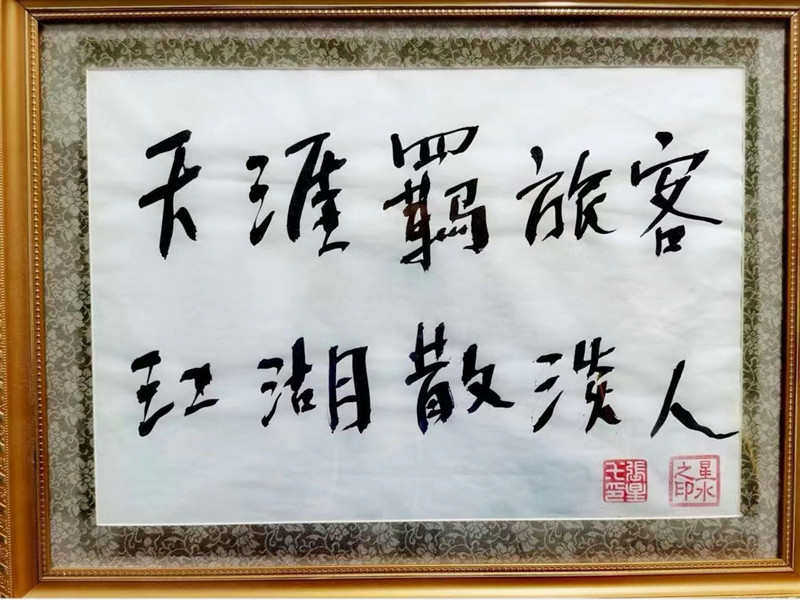 天涯羁旅客
江湖散淡人
星水之印